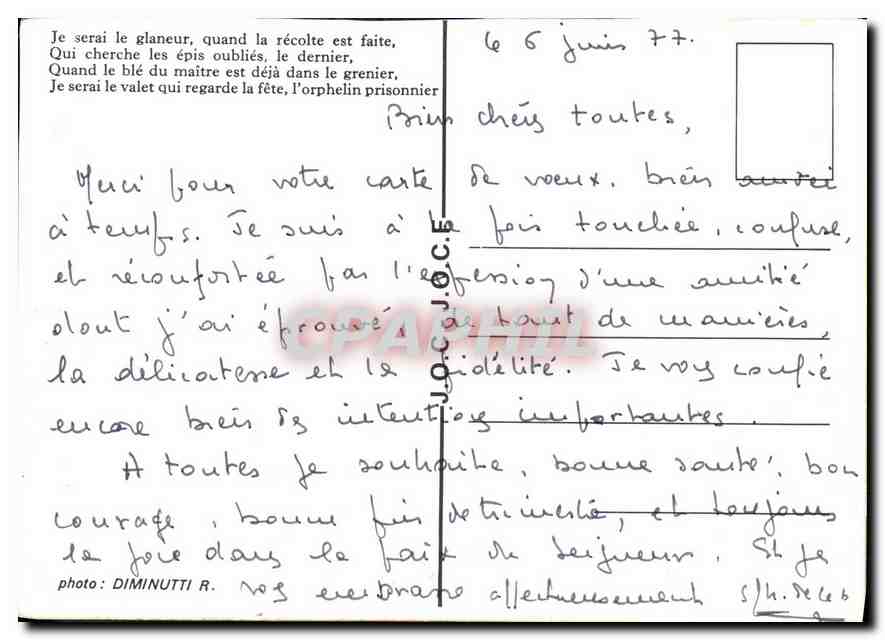 Je serai le glaneur, quand la récolte est faite,
Qui cherche les épis oubliés, le dernier,
Quand le blé du maître est déjà dans le grenier,
Je serai le valet qui regarde la fête, l'orphelin prisonnier
Le 6 juin 77.
Bien chères toutes,
Merci pour votre carte de voeux, bien arrivée
à temps. Je suis à la fois touchée, confuse,
et réconfortée par l'expression d'une amitié
dont j'ai éprouvé, de tant de manières,
la délicatesse et la fidélité. Je vous confie
encore bien des intentions importantes.
A toutes je souhaite, bonne santé, bon
courage, bonne fin de trimestre, et toujours
la joie dans la paix du Seigneur. Et je
vous embrasse affectueusement
photo : DIMINUTTI R.
J.O.C. J.O.C.F
CPAPHIL